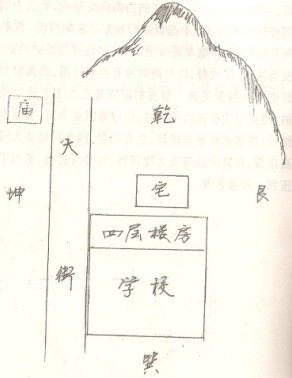 庙
乾
大
坤
宅
艮
四层楼房
街
学校
巽